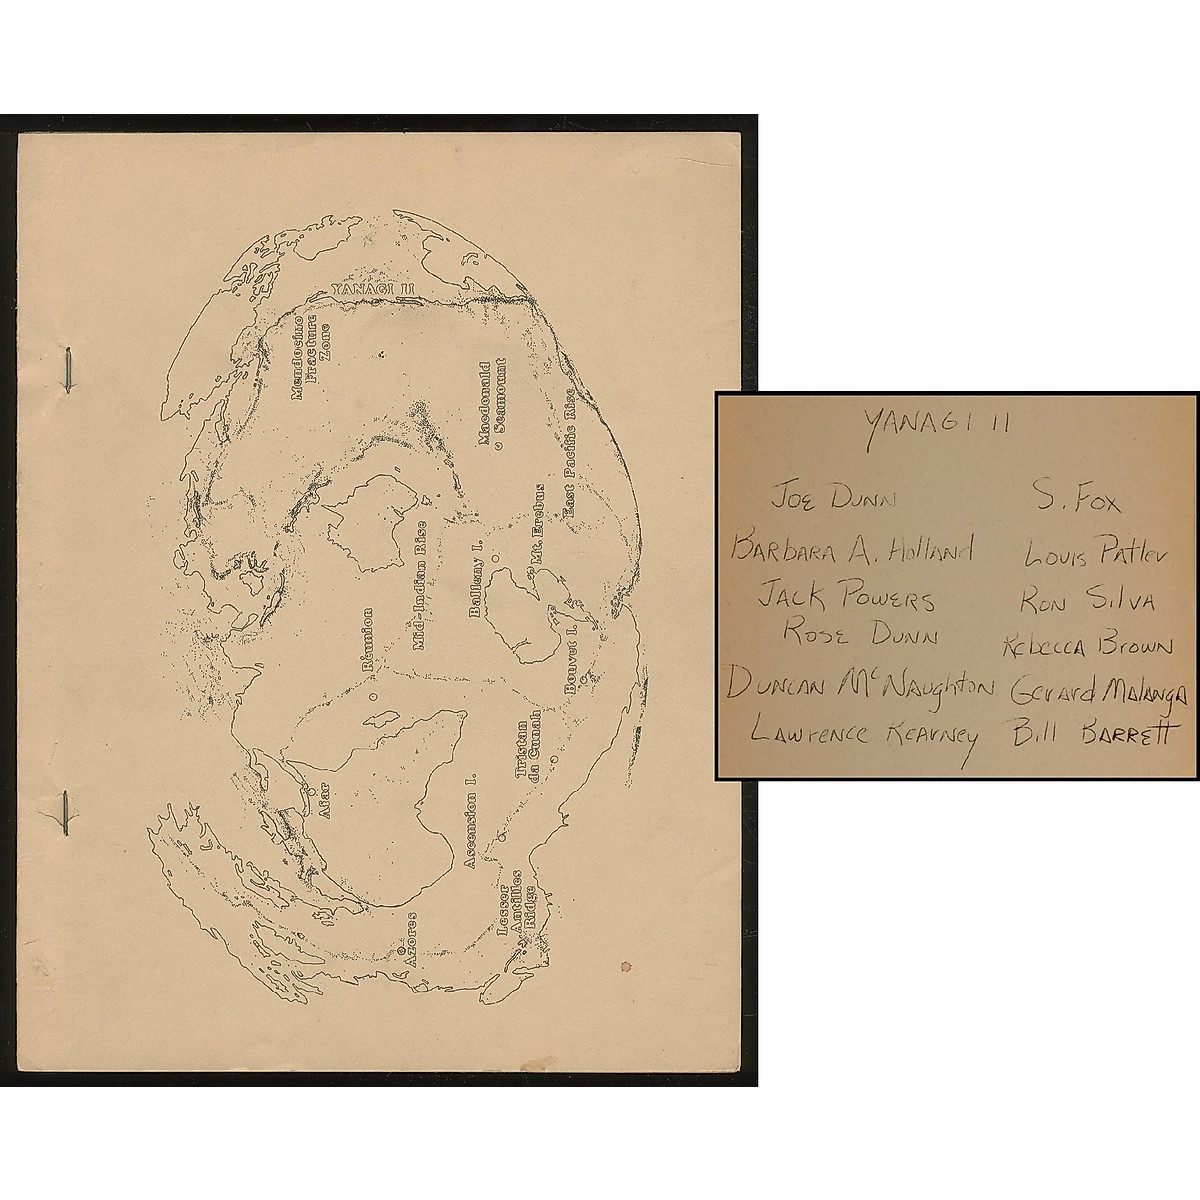 YANAGI II
Mendocino
Fracture
Zone
Macdonald
Seamount
East Pacific Rise
Mt. Erebus
Balleny I.
Mid-Indian Rise
Réunion
Bouvet I.
Tristan
da Cunah
Afar
Ascension I.
Lesser
Antilles
Ridge
Azores
YANAGI II
JOE DUNN
S. FOX
BARBARA A. HOLLAND
LOUIS PATLER
JACK POWERS
RON SILVA
ROSE DUNN
REBECCA BROWN
DUNCAN McNAUGHTON
GERARD MALANGA
LAWRENCE KEARNEY
BILL BARRETT